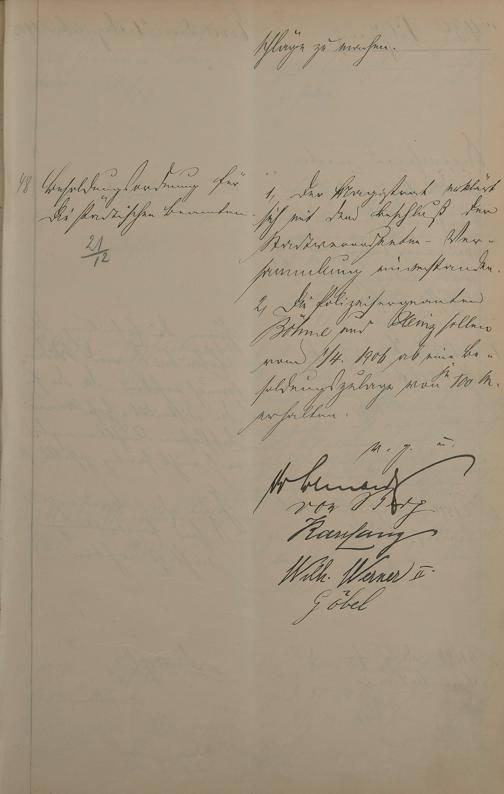 schläge zu machen.
48 Besoldungsordnung für
die städtischen Beamten.
21/12
1, Der Magistrat erklärt
sich mit dem Beschluß der
Stadtverordneten-Ver-
sammlung einverstanden.
2, Die Polizeisergeanten
Böhme und sollen
vom 1/4. 1906 ab eine Be-
soldungszulage von je 100 M.
erhalten.
v. g. u.
Karl Lang
Wilh. Werner II.
Göbel